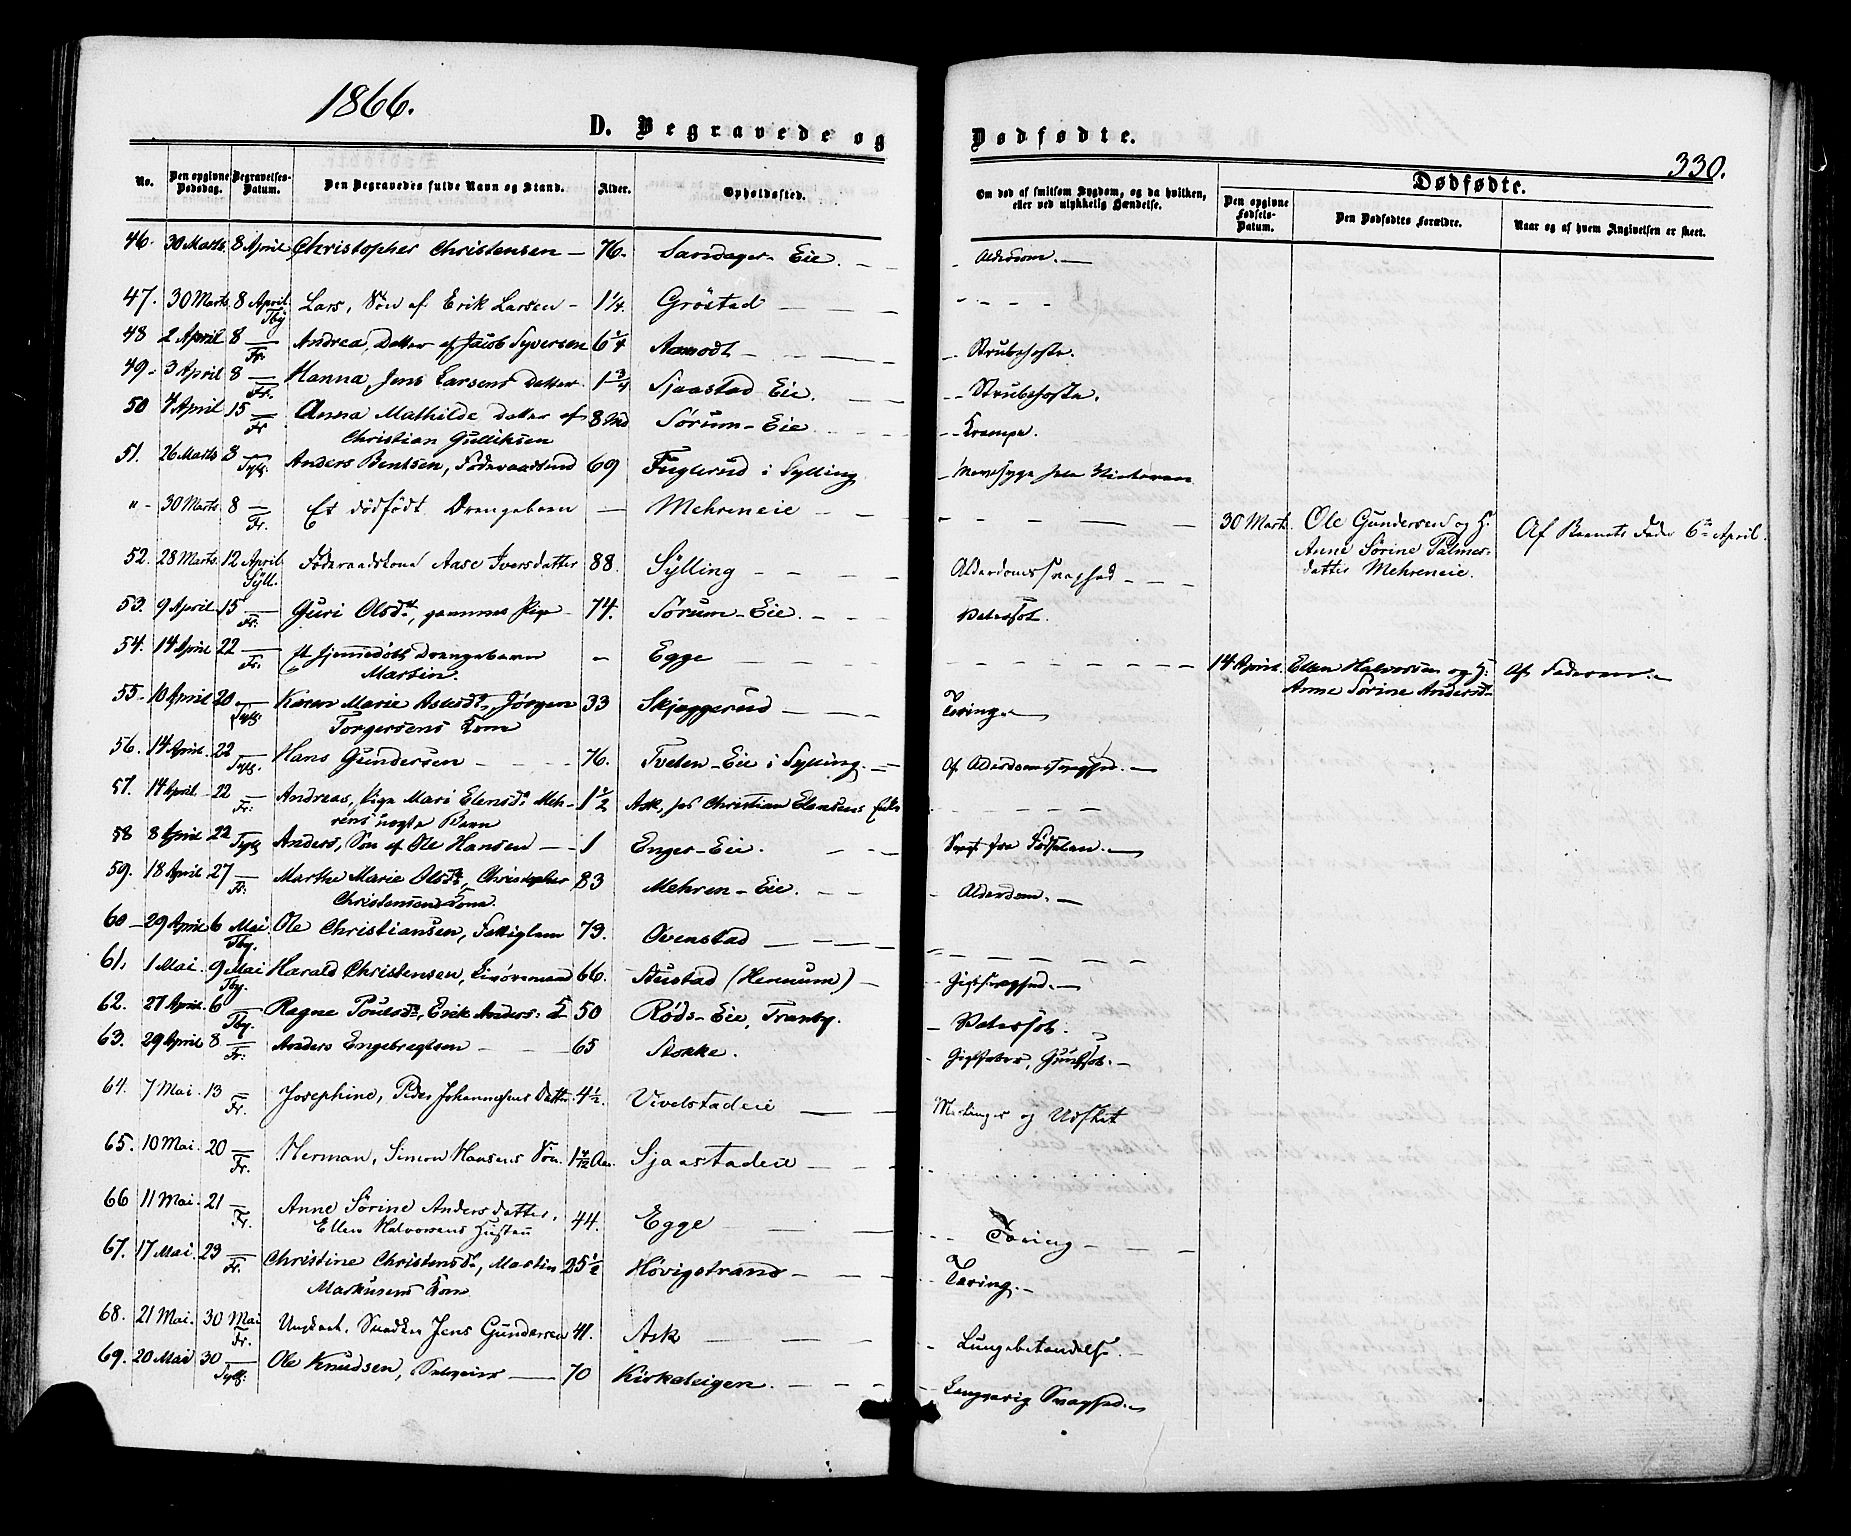 1866.
D. Begravede og Dødfødte.
330.
No. Den opgivne Dødsdag. Begravelses-Datum. Den Begravedes fulde Navn og Stand. Alder. Opholdssted. Om død af smitsom Sygdom, og da hvilken, eller ved ulykkelig Hændelse.
Dødfødte.
Den opgivne Fødsels-Datum. Den Dødfødtes Forældre. Naar og af hvem Angivelsen er skeet.
46. 30 Marts 8 April Christopher Christensen — 76. Sandager-Eie. Alderdom.
47. 30 Marts 8 April Tby Lars, Søn af Erik Larsen 1 1/4 Gröstad
48 2 April 8 — Fr. Andrea, Datter af Jacob Syversen 6 1/4 Aamodt Strubehoste.
49. 3 April 8 — Fr. Hanna, Jens Larsens Datter 1 3/4 Sjaastad Eie. Strubehoste.
50 4 April 15 — Fr Anna Mathilde Datter af 8 Md Sørum-Eie Krampe.
Christian Gulliksen
51. 26 Marts 8 — Sylg. Anders Bentsen, Føderaadsmd 69 Fuglerud i Sylling
" 30 Marts 8 — Fr. Et dødfødt Drengebarn — Mehreneie 30 Marts Ole Gundersen og H. Af Barnets Fader 6te April.
Anne Sörine Palmes-
datter Mehreneie.
52. 28 Marts 12 April Syll. Føderaadskone Aase Iversdatter 88. Sylling Alderdomssvaghed
53. 9 April 15 — Fr: Guri Olsdt, gammel Pige 74. Sørum-Eie.
54. 14 April 22 — Fr. Et hjemmedöbt Drengebarn Egge 14 April. Ellen Halvorsen og H. Af Faderen.
Martin. Anne Sörine Andersdt
55. 10 April 20 — Sylg. Karen Marie Aslesdt, Jörgen 33 Skjæggerud Tæring.
Torgersens Kone
56. 14 April. 22 — Sylg. Hans Gundersen 76. Tveten-Eie i Sylling. Af Alderdomssvaghed.
57. 14 April 22 — Fr: Andreas, Pige Mari Elensdt Meh- 1 1/2 Ask, hos Christian Elensens
rens uægte Barn
58 8 April 22 Sylg Anders, Søn af Ole Hansen 1 Enger-Eie. Svag fra Födselen.
59. 18 April 27 — Fr. Marthe Marie Olsdt, Christopher 83 Mehren-Eie. Alderdom.
Christensens Kone.
60 29 April 6 Mai Tby. Ole Christiansen, Fattiglem 73. Ovenstad
61. 1 Mai. 9 Mai Tby. Harald Christensen, 66. Stustad (Hennum) Gigtsvaghed.
62. 27 April. 6 — Tby. Ragne Poulsdt, Erik Anders: K 50 Røds-Eie, Tranby.
63. 29 April 8 — Fr. Anders Engebregtsen 65 Stokke. Gigtfeber,
64. 7 Mai. 13 — Fr. Josephine, Peder Johannesens Datter 4 1/2. Vivelstadeie Meslinger og Udslet
65. 10 Mai. 20 — Fr. Herman, Simon Hansens Søn. 1 4/12 Aar. Sjaastadeie
66 11 Mai. 21 — Fr. Anne Sörine Andersdatter, 44. Egge Tæring
Ellen Halvorsens Hustru
67. 17 Mai. 23 — Fr. Christine Christensdt, Martin 25 1/2 Høvigstrand Tæring.
Markusens Kone.
68. 21 Mai. 30 Mai Fr. Ungkarl, Snedker Jens Gundersen 41. Ask Lungebetændelse.
69. 20 Mai 30 — Sylg. Ole Knudsen, 70 Kirkeleigen. Langvarig Svaghed.